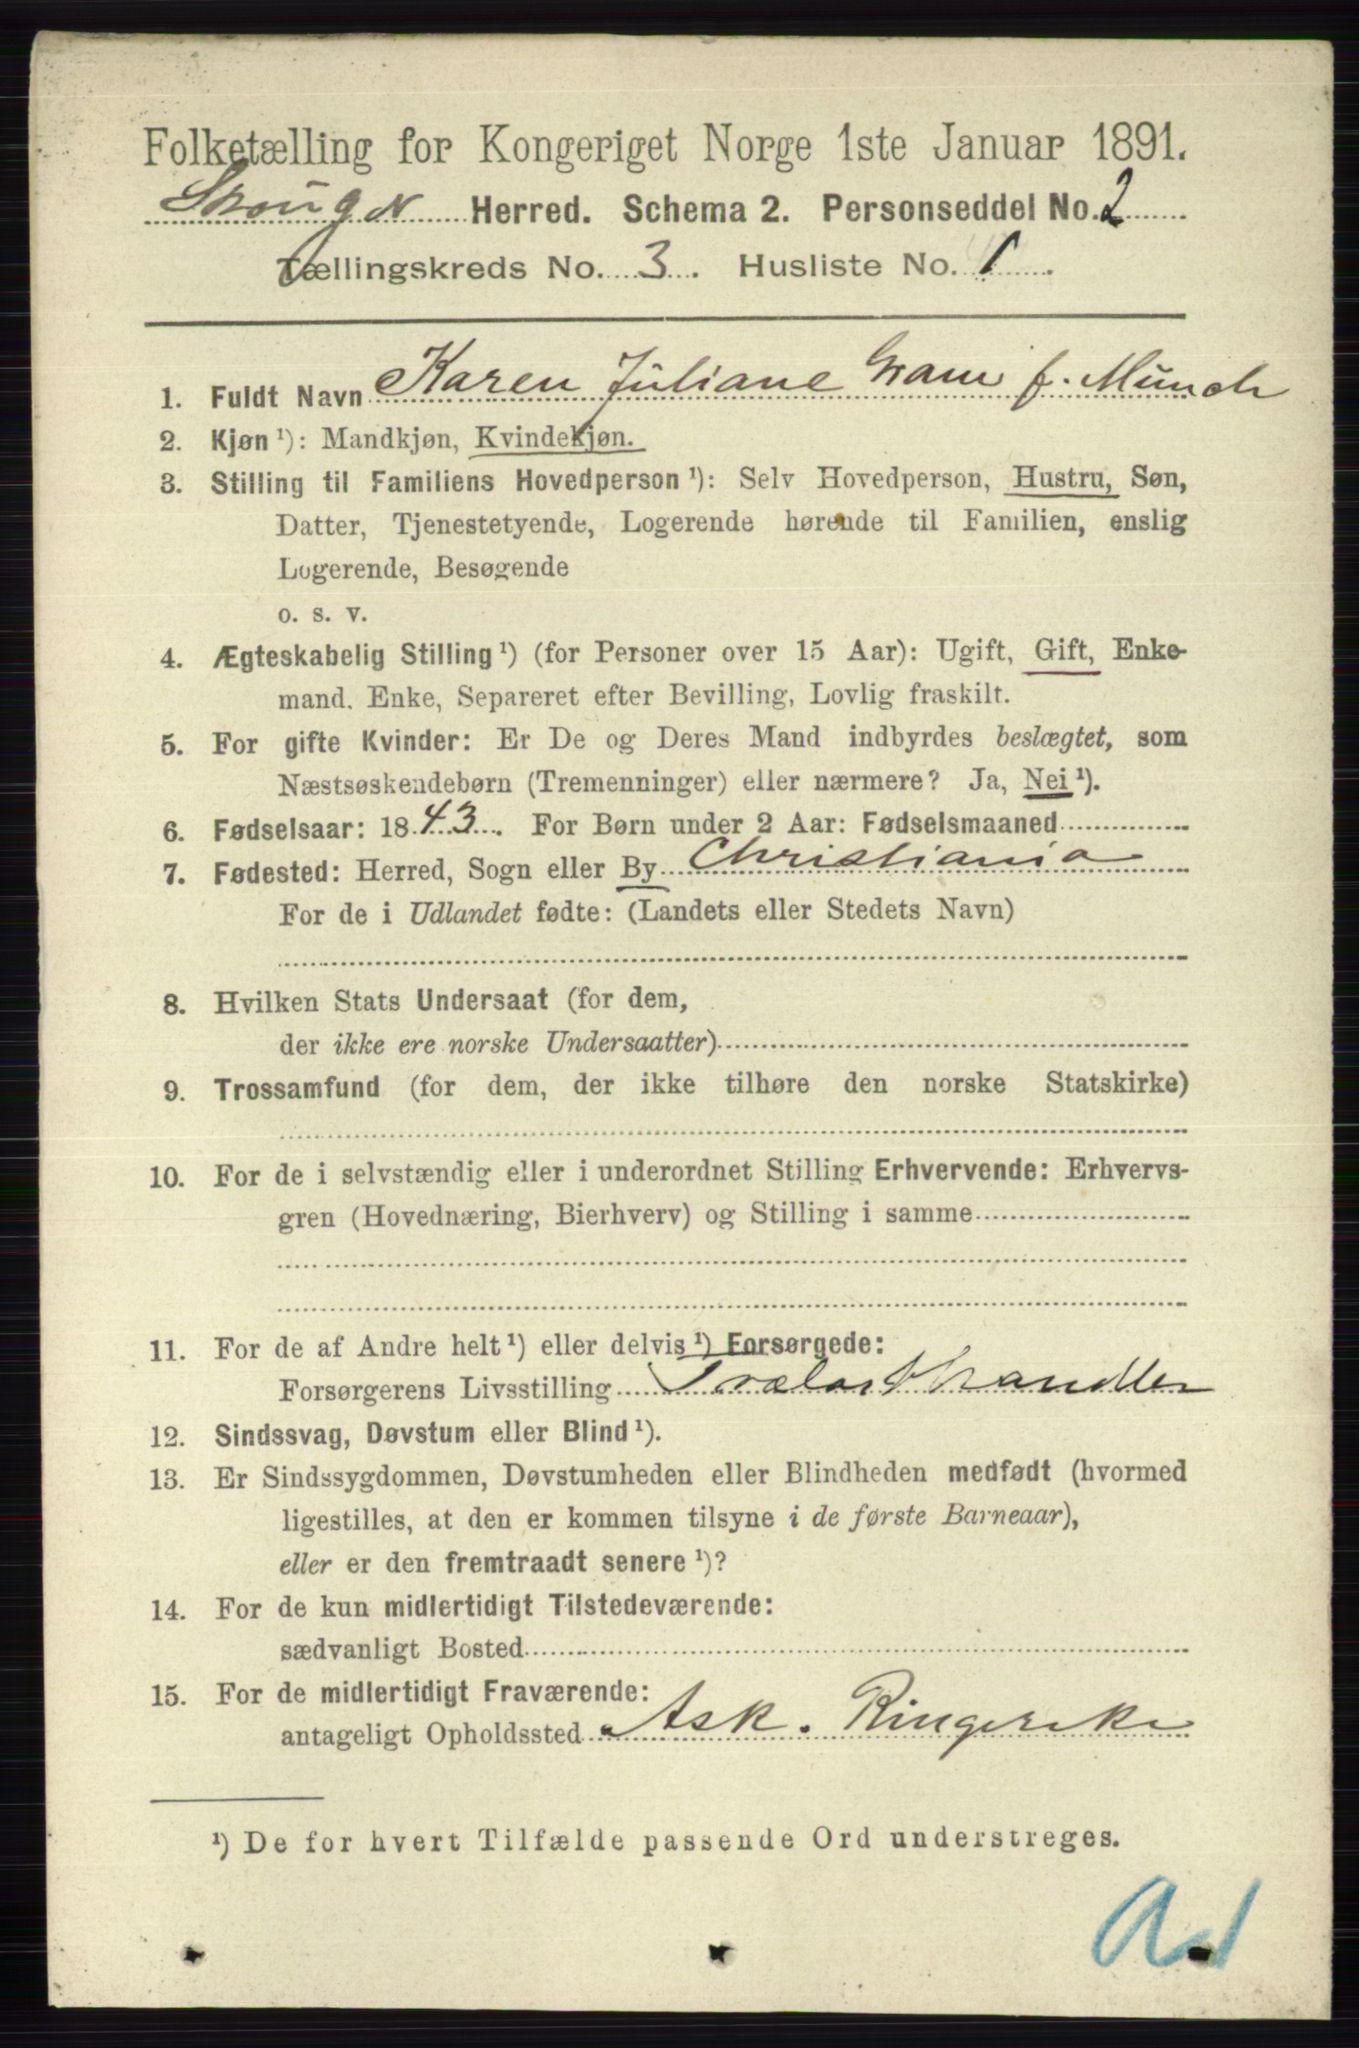 Folketælling for Kongeriget Norge 1ste Januar 1891.
Skouger Herred. Schema 2. Personseddel No. 2
Tællingskreds No. 3. Husliste No. 1.
1. Fuldt Navn Karen Juliane Gram f. Munch
2. Kjøn ¹): Mandkjøn, Kvindekjøn.
3. Stilling til Familiens Hovedperson ¹): Selv Hovedperson, Hustru, Søn,
Datter, Tjenestetyende, Logerende hørende til Familien, enslig
Logerende, Besøgende
o. s. v.
4. Ægteskabelig Stilling ¹) (for Personer over 15 Aar): Ugift, Gift, Enke-
mand, Enke, Separeret efter Bevilling, Lovlig fraskilt.
5. For gifte Kvinder: Er De og Deres Mand indbyrdes beslægtet, som
Næstsøskendebørn (Tremenninger) eller nærmere? Ja, Nei ¹).
6. Fødselsaar: 1843. For Børn under 2 Aar: Fødselsmaaned
7. Fødested: Herred, Sogn eller By Christiania
For de i Udlandet fødte: (Landets eller Stedets Navn)
8. Hvilken Stats Undersaat (for dem,
der ikke ere norske Undersaatter)
9. Trossamfund (for dem, der ikke tilhøre den norske Statskirke)
10. For de i selvstændig eller i underordnet Stilling Erhvervende: Erhvervs-
gren (Hovednæring, Bierhverv) og Stilling i samme
11. For de af Andre helt ¹) eller delvis ¹) Forsørgede:
Forsørgerens Livsstilling Trælasthandler
12. Sindssvag, Døvstum eller Blind ¹).
13. Er Sindssygdommen, Døvstumheden eller Blindheden medfødt (hvormed
ligestilles, at den er kommen tilsyne i de første Barneaar),
eller er den fremtraadt senere ¹)?
14. For de kun midlertidigt Tilstedeværende:
sædvanligt Bosted
15. For de midlertidigt Fraværende:
antageligt Opholdssted Ask. Ringerike
¹) De for hvert Tilfælde passende Ord understreges.